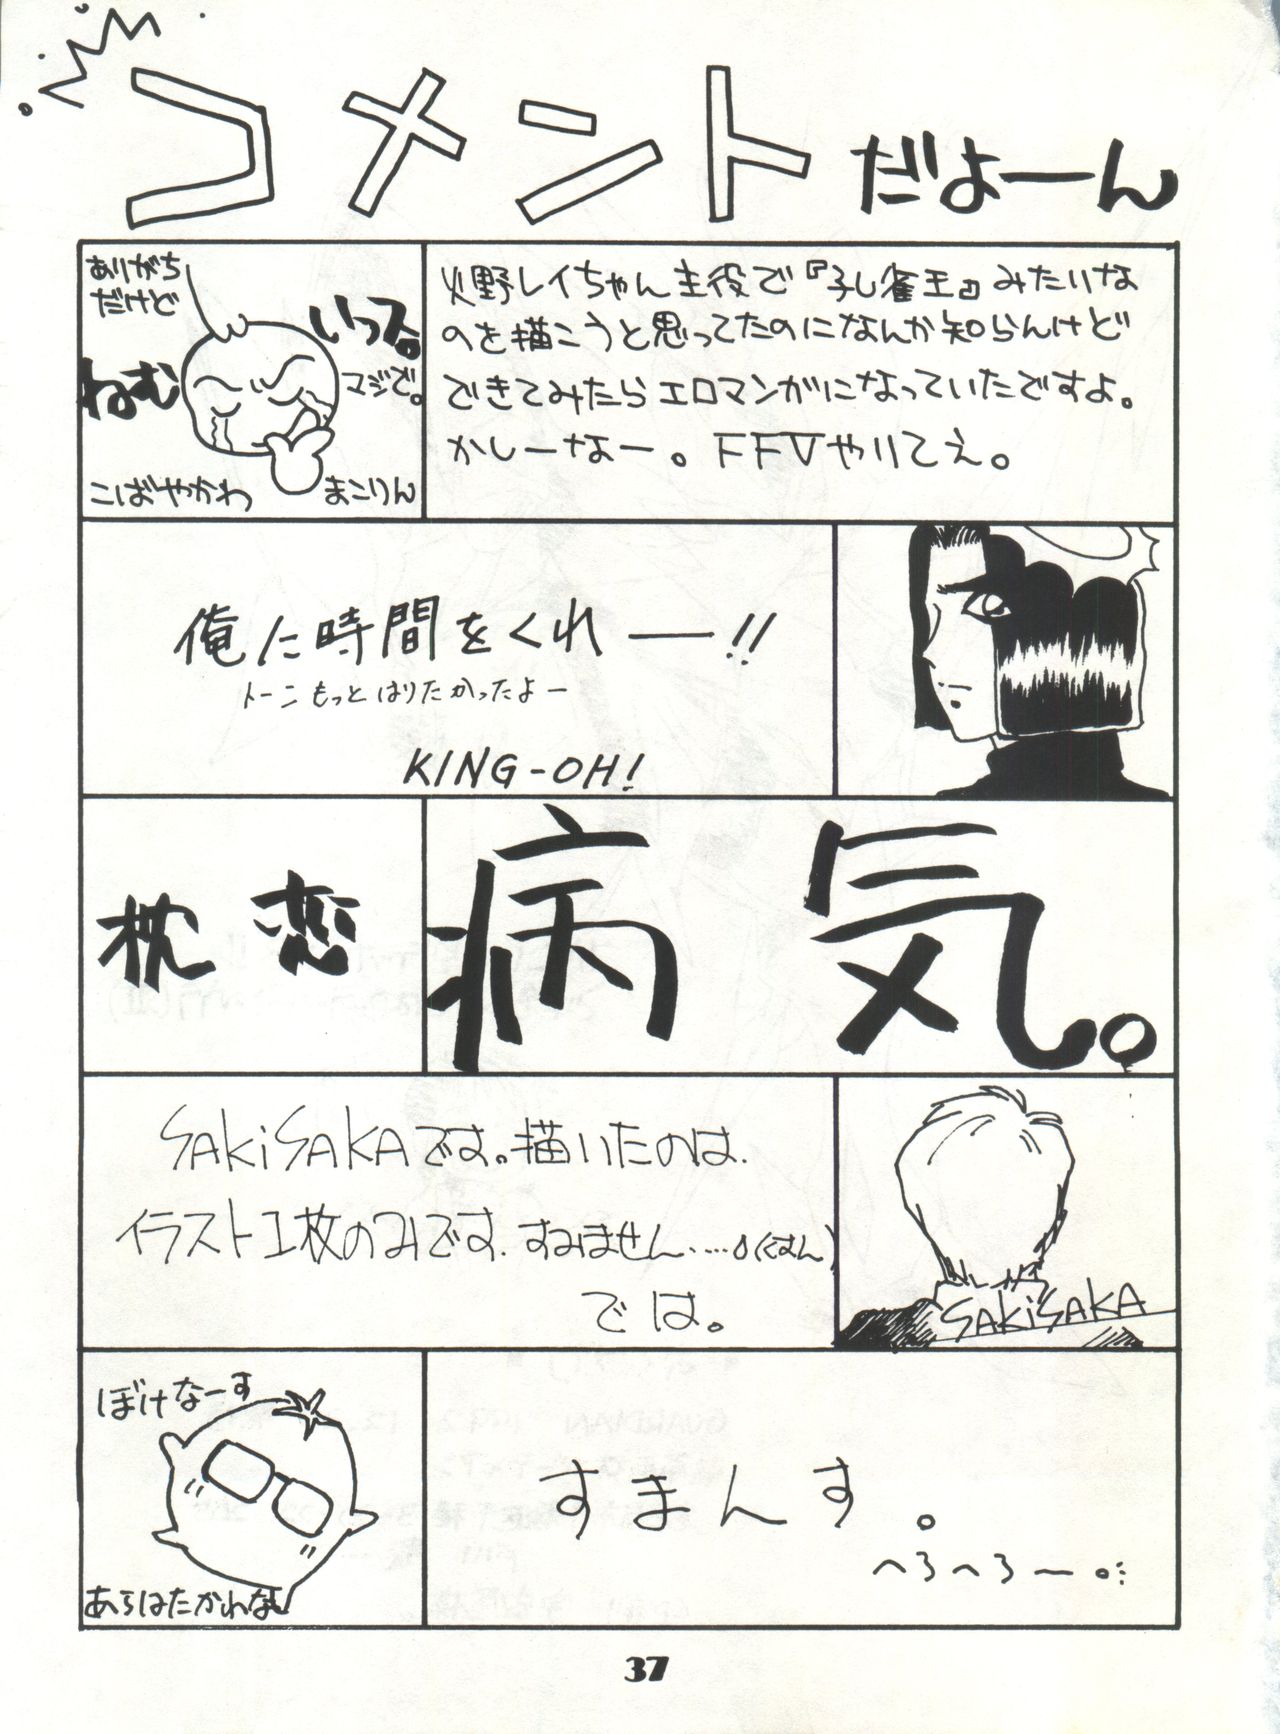 コメントだよーん
ありがち
だけど
ねむ
いっス。
マジで。
こばやかわ まこりん
火野レイちゃん主役で『孔雀王』みたいな
のを描こうと思ってたのになんか知らんけど
できてみたらエロマンガになっていたですよ。
かしーなー。FFⅤやりてえ。
俺に時間をくれ――!!
トーンもっとはりたかったよー
KING-OH!
枕 恋
病気。
SAKiSAKAです。描いたのは、
イラスト1枚のみです。すみません……(くすん)
では。
SAKiSAKA
ぼけなーす
あらはたかわな
すまんす。
へろへろー
37